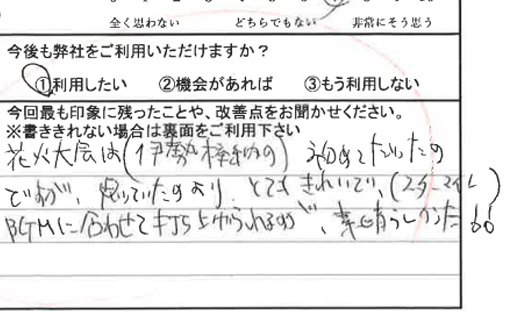 全く思わない どちらでもない 非常にそう思う
今後も弊社をご利用いただけますか？
①利用したい ②機会があれば ③もう利用しない
今回最も印象に残ったことや、改善点をお聞かせください。
※書ききれない場合は裏面をご利用下さい
花火大会は(伊勢神宮奉納の) 初めてだったの
ですが、思っていたのより、とてもきれいで、
BGMに合わせて打ち上げられるのが、素晴らしかった